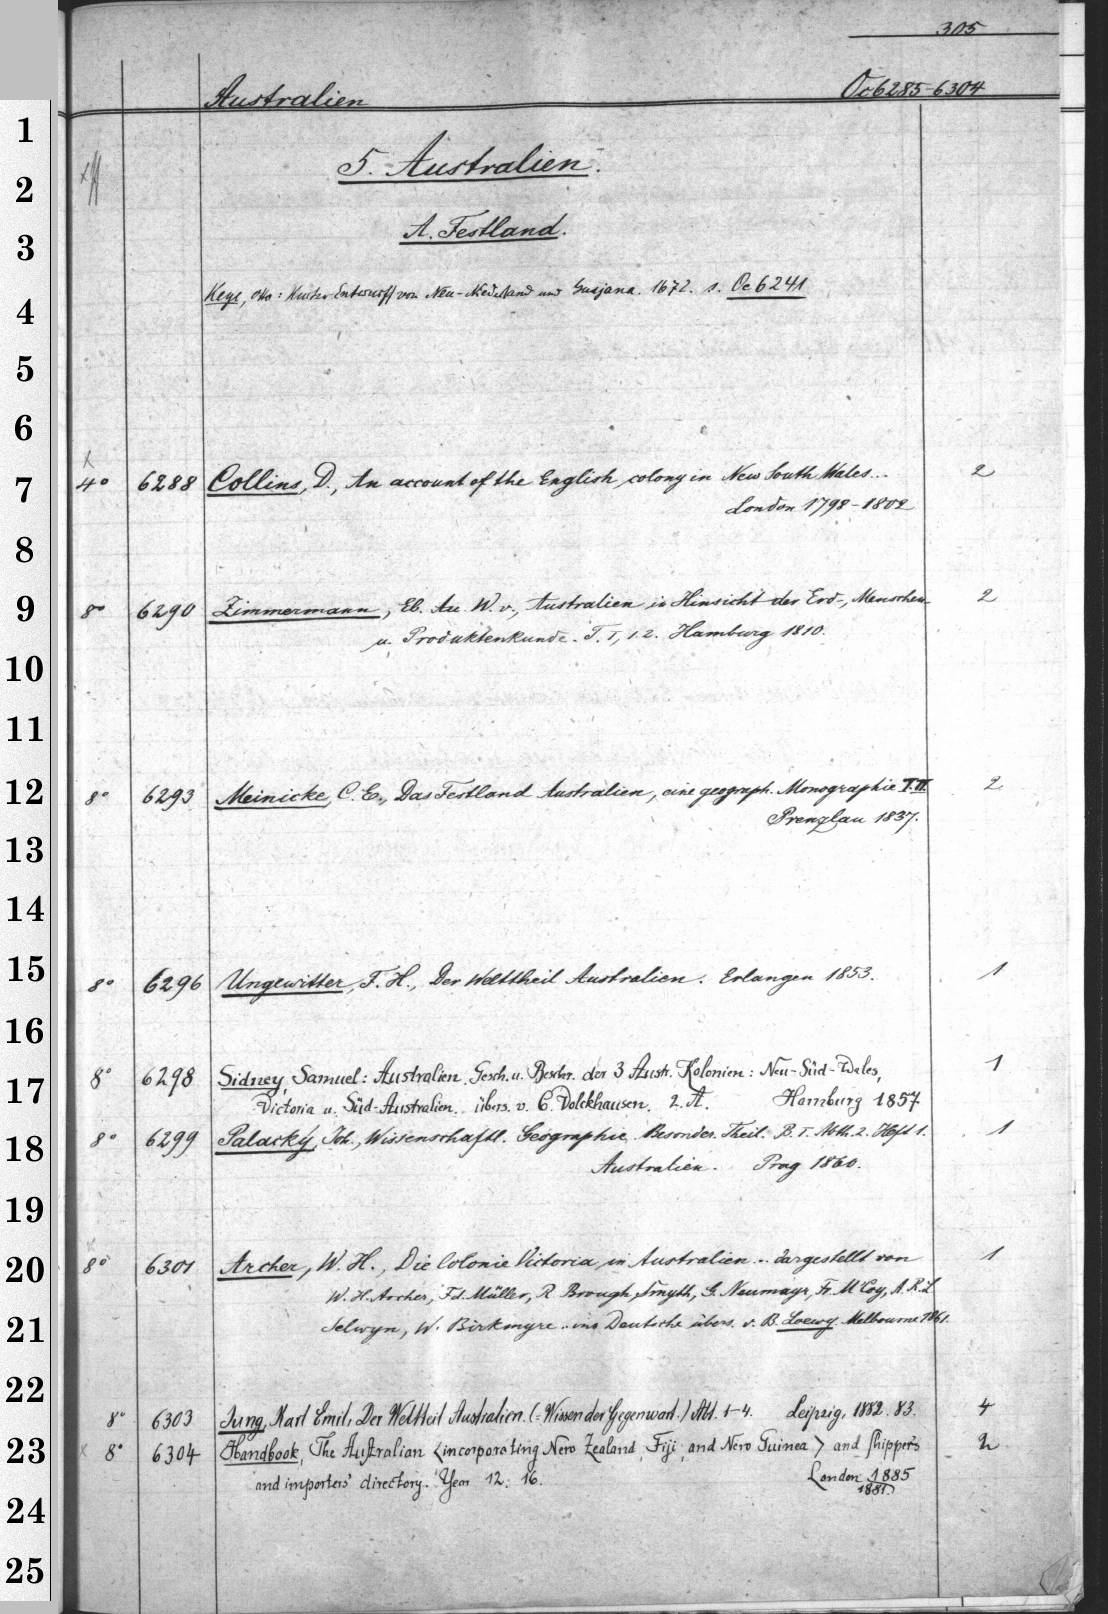 305
Australien Oc 6285-6304
5. Australien.
A. Festland.
Keye, Otto: Kurtzer Entwurff von Neu-Niederland und Guajana. 1672. s. Oc 6241
4° 6288 Collins, D., An account of the English colony in New South Wales... 2
London 1798-1802
8° 6290 Zimmermann, Eb. Au. W. v., Australien in Hinsicht der Erd-, Menschen- 2
u. Produktenkunde. T. I, 1.2. Hamburg 1810.
8° 6293 Meinicke, C. E., Das Festland Australien, eine geograph. Monographie T. I. II. 2
Prenzlau 1837.
8° 6296 Ungewitter, F. H., Der Welttheil Australien. Erlangen 1853. 1
8° 6298 Sidney, Samuel: Australien. Gesch. u. Beschr. der 3 Austr. Kolonien: Neu-Süd-Wales, 1
Victoria u. Süd-Australien. übers. v. C. Volckhausen. 2. A. Hamburg 1857
8° 6299 Palacký, Joh., Wissenschaftl. Geographie. Besonder. Theil. B. I. Abth. 2. Heft 1. 1
Australien. Prag 1860.
8° 6301 Archer, W. H., Die Colonie Victoria in Australien... dargestellt von 1
W. H. Archer, Fd. Müller, R. Brough Smyth, G. Neumayr, Fr. M'Coy, A. R. C.
Selwyn, W. Birkmyre .. ins Deutsche übers. v. B. Loewy. Melbourne 1861.
8° 6303 Jung, Karl Emil, Der Weltteil Australien. (= Wissen der Gegenwart.) Abt. 1-4. Leipzig, 1882. 83. 4
8° 6304 Handbook, The Australian <incorporating New Zealand, Fiji, and New Guinea> and shippers 2
and importers' directory. Year 12. 16. London 1885
1881
1
2
3
4
5
6
7
8
9
10
11
12
13
14
15
16
17
18
19
20
21
22
23
24
25